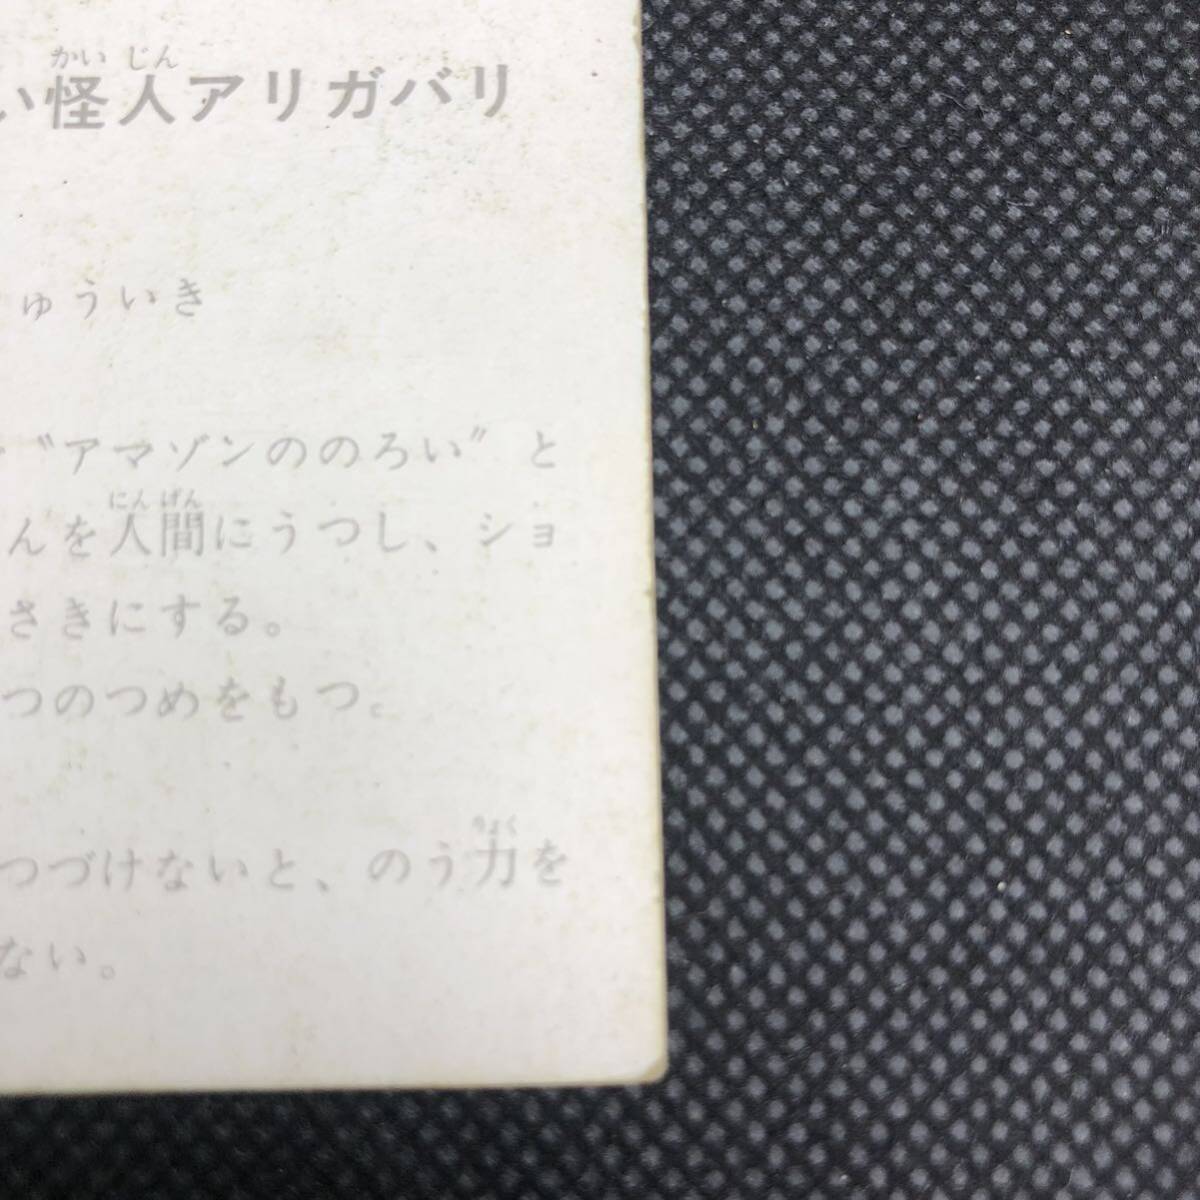 かいじん
い怪人アリガバリ
ゅういき
〝アマゾンののろい〟と
にんげん
んを人間にうつし、ショ
さきにする。
つのつめをもつ。
りょく
つづけないと、のう力を
ない。